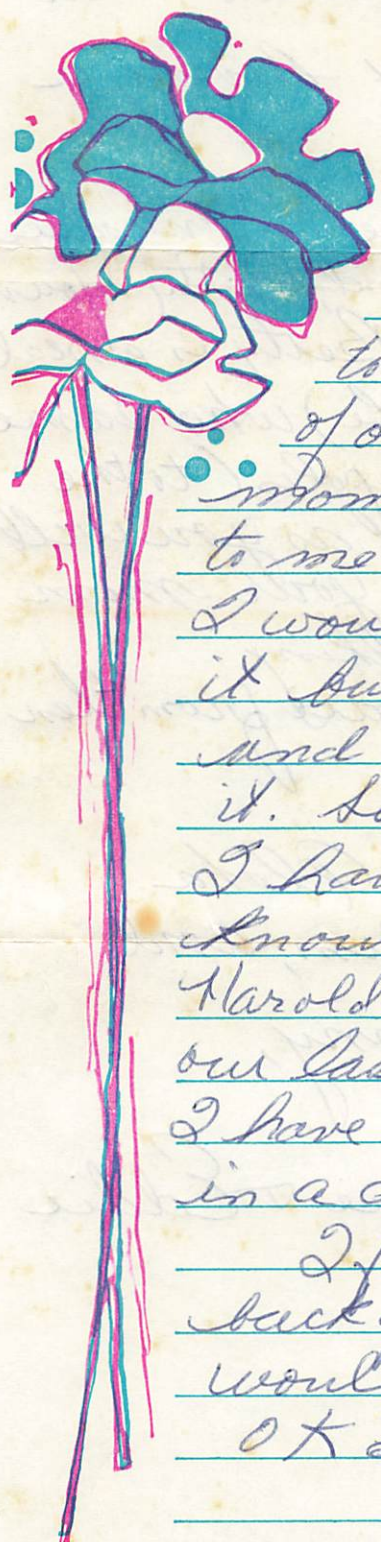 to
of o
mom
to me
I wou
it bu
and
it. S
I hav
know
Harold
our las
I have
in a c
If
back
woul
OK